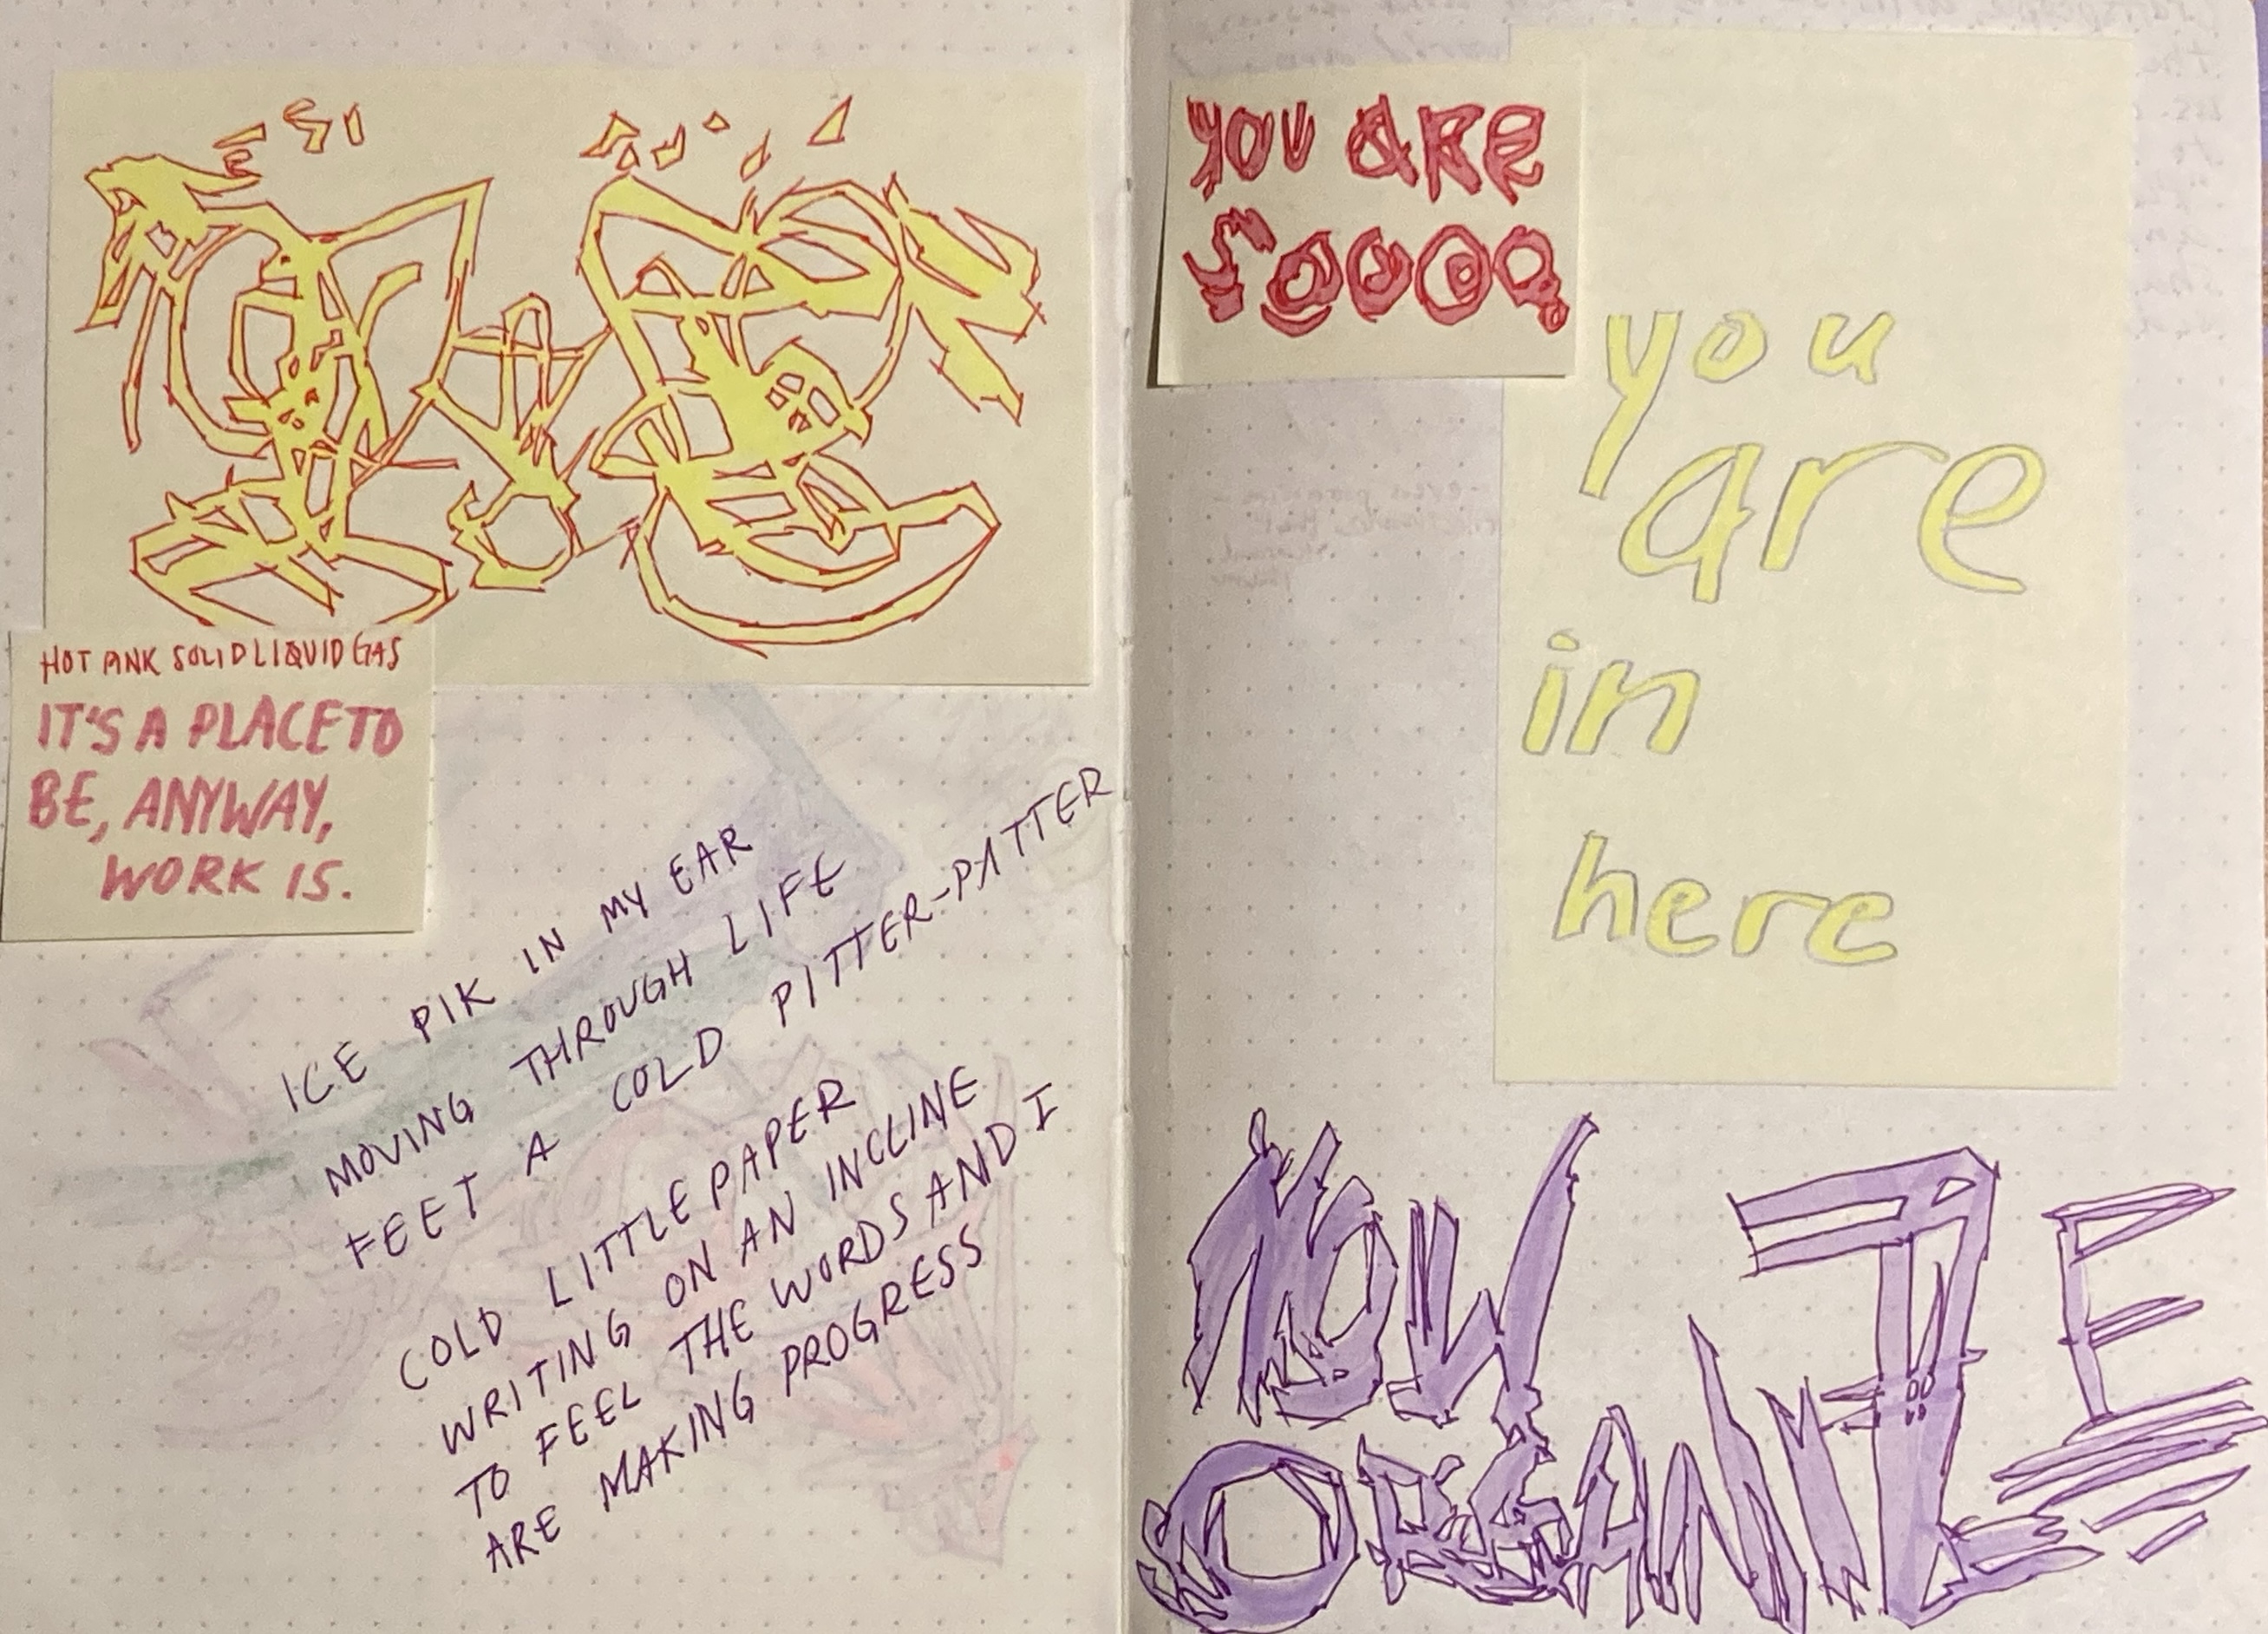 HOT PINK SOLID LIQUID GAS
IT'S A PLACE TO
BE, ANYWAY,
WORK IS.
ICE PIK IN MY EAR
MOVING THROUGH LIFE
FEET A COLD PITTER-PATTER
COLD LITTLE PAPER
WRITING ON AN INCLINE
TO FEEL THE WORDS AND I
ARE MAKING PROGRESS
YOU ARE
SOOOO
you
are
in
here
NOW
ORGANIZE